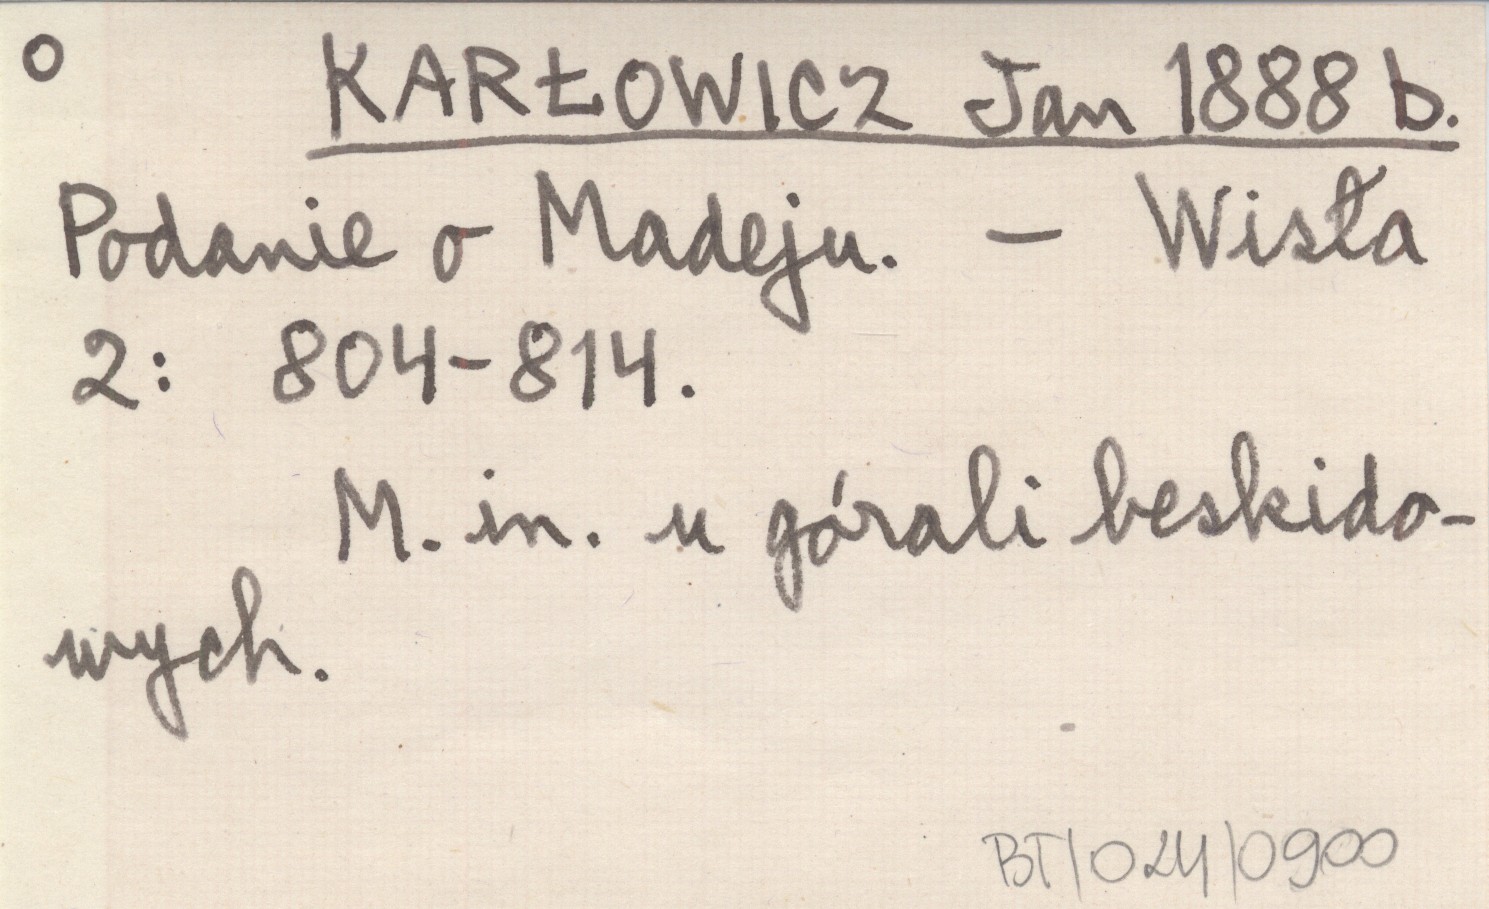 o KARŁOWICZ Jan 1888 b.
Podanie o Madeju. – Wisła
2: 804-814.
M. in. u górali beskido-
wych.
BT/024/0900